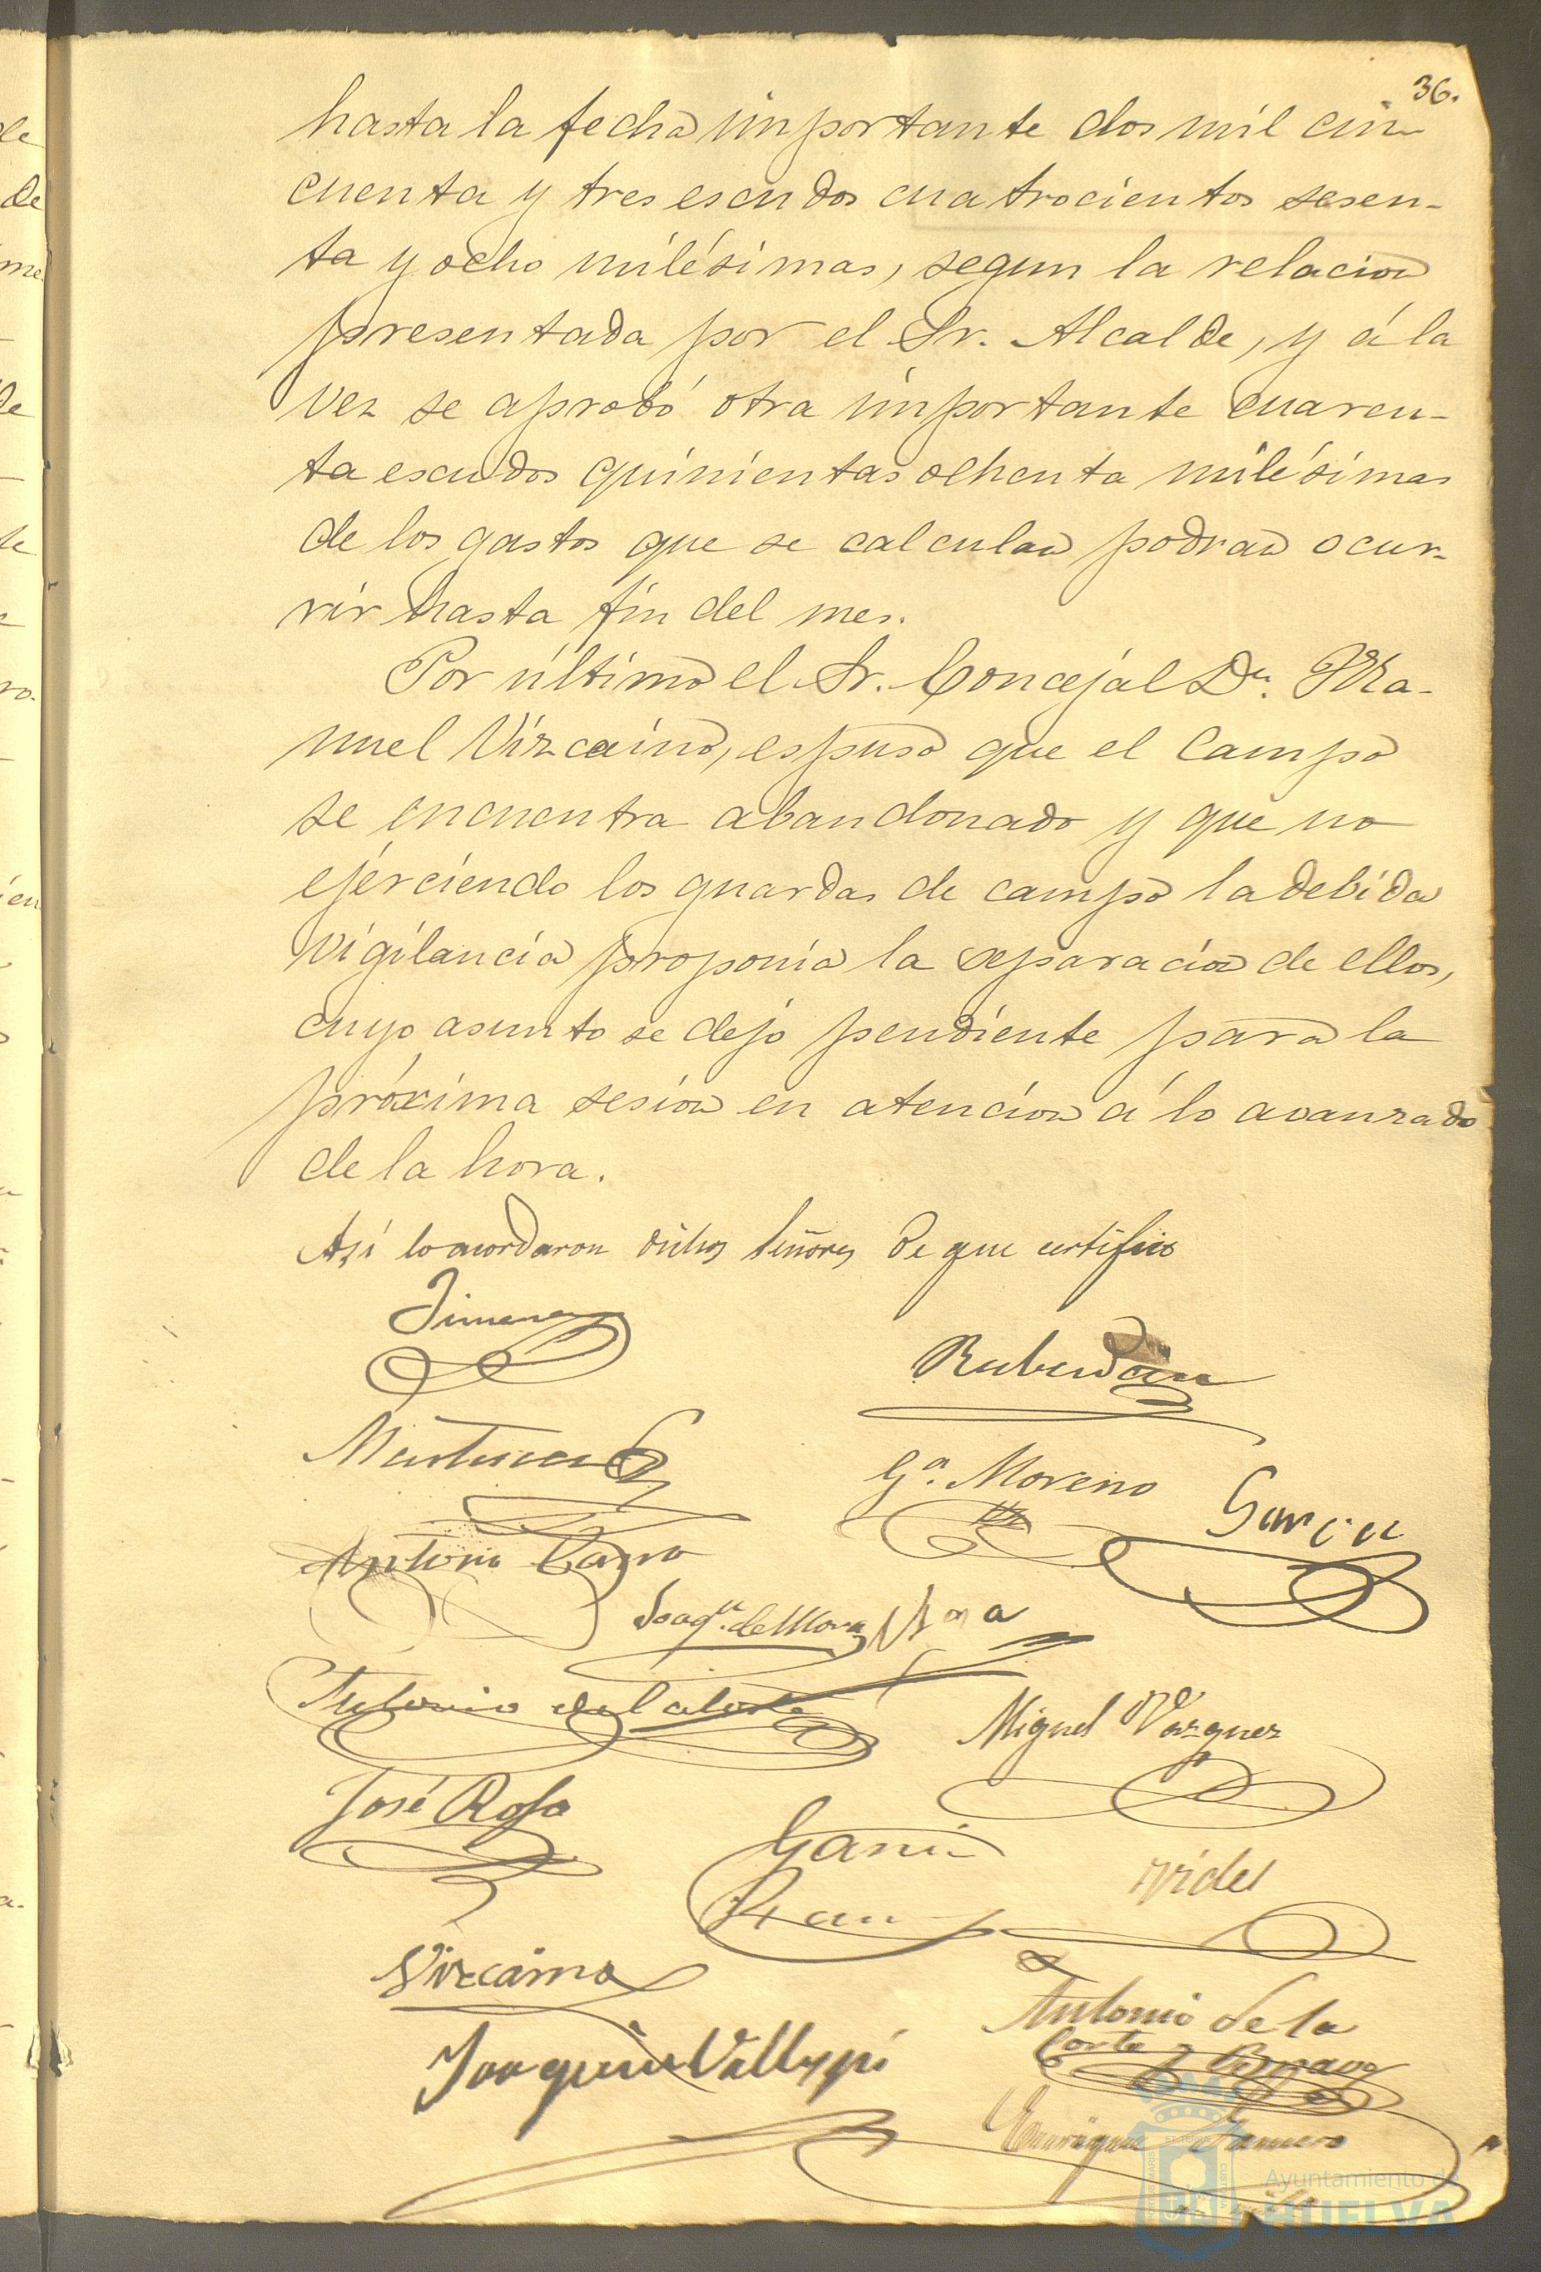 36.
hasta la fecha importante dos mil cin-
cuenta y tres escudos cuatrocientos sesen-
ta y ocho milésimas, segun la relacion
presentada por el Sr. Alcalde, y á la
vez se aprobó otra importante cuaren-
ta escudos quinientas ochenta milésimas
de los gastos que se calculan podran ocur-
rir hasta fin del mes.
Por último el Sr. Concejal Dn. Ma-
nuel Vizcaino, espuso que el campo
se encuentra abandonado y que no
ejerciendo los guardas de campo la debida
vigilancia proponia la separacion de ellos,
cuyo asunto se dejó pendiente para la
próxima sesion en atencion á lo avanzado
de la hora.
Así lo acordaron dichos Señores de que certifico
Jimenez
Martinez
Gª. Moreno
Garcia
Antonio
Joaqn. de Mora
Antonio de la Corte
Miguel Vazquez
José Rosa
Garcia
Vides
Vizcaino
Antonio de la
Corte y
Joaquin
Ayuntamiento de
HUELVA